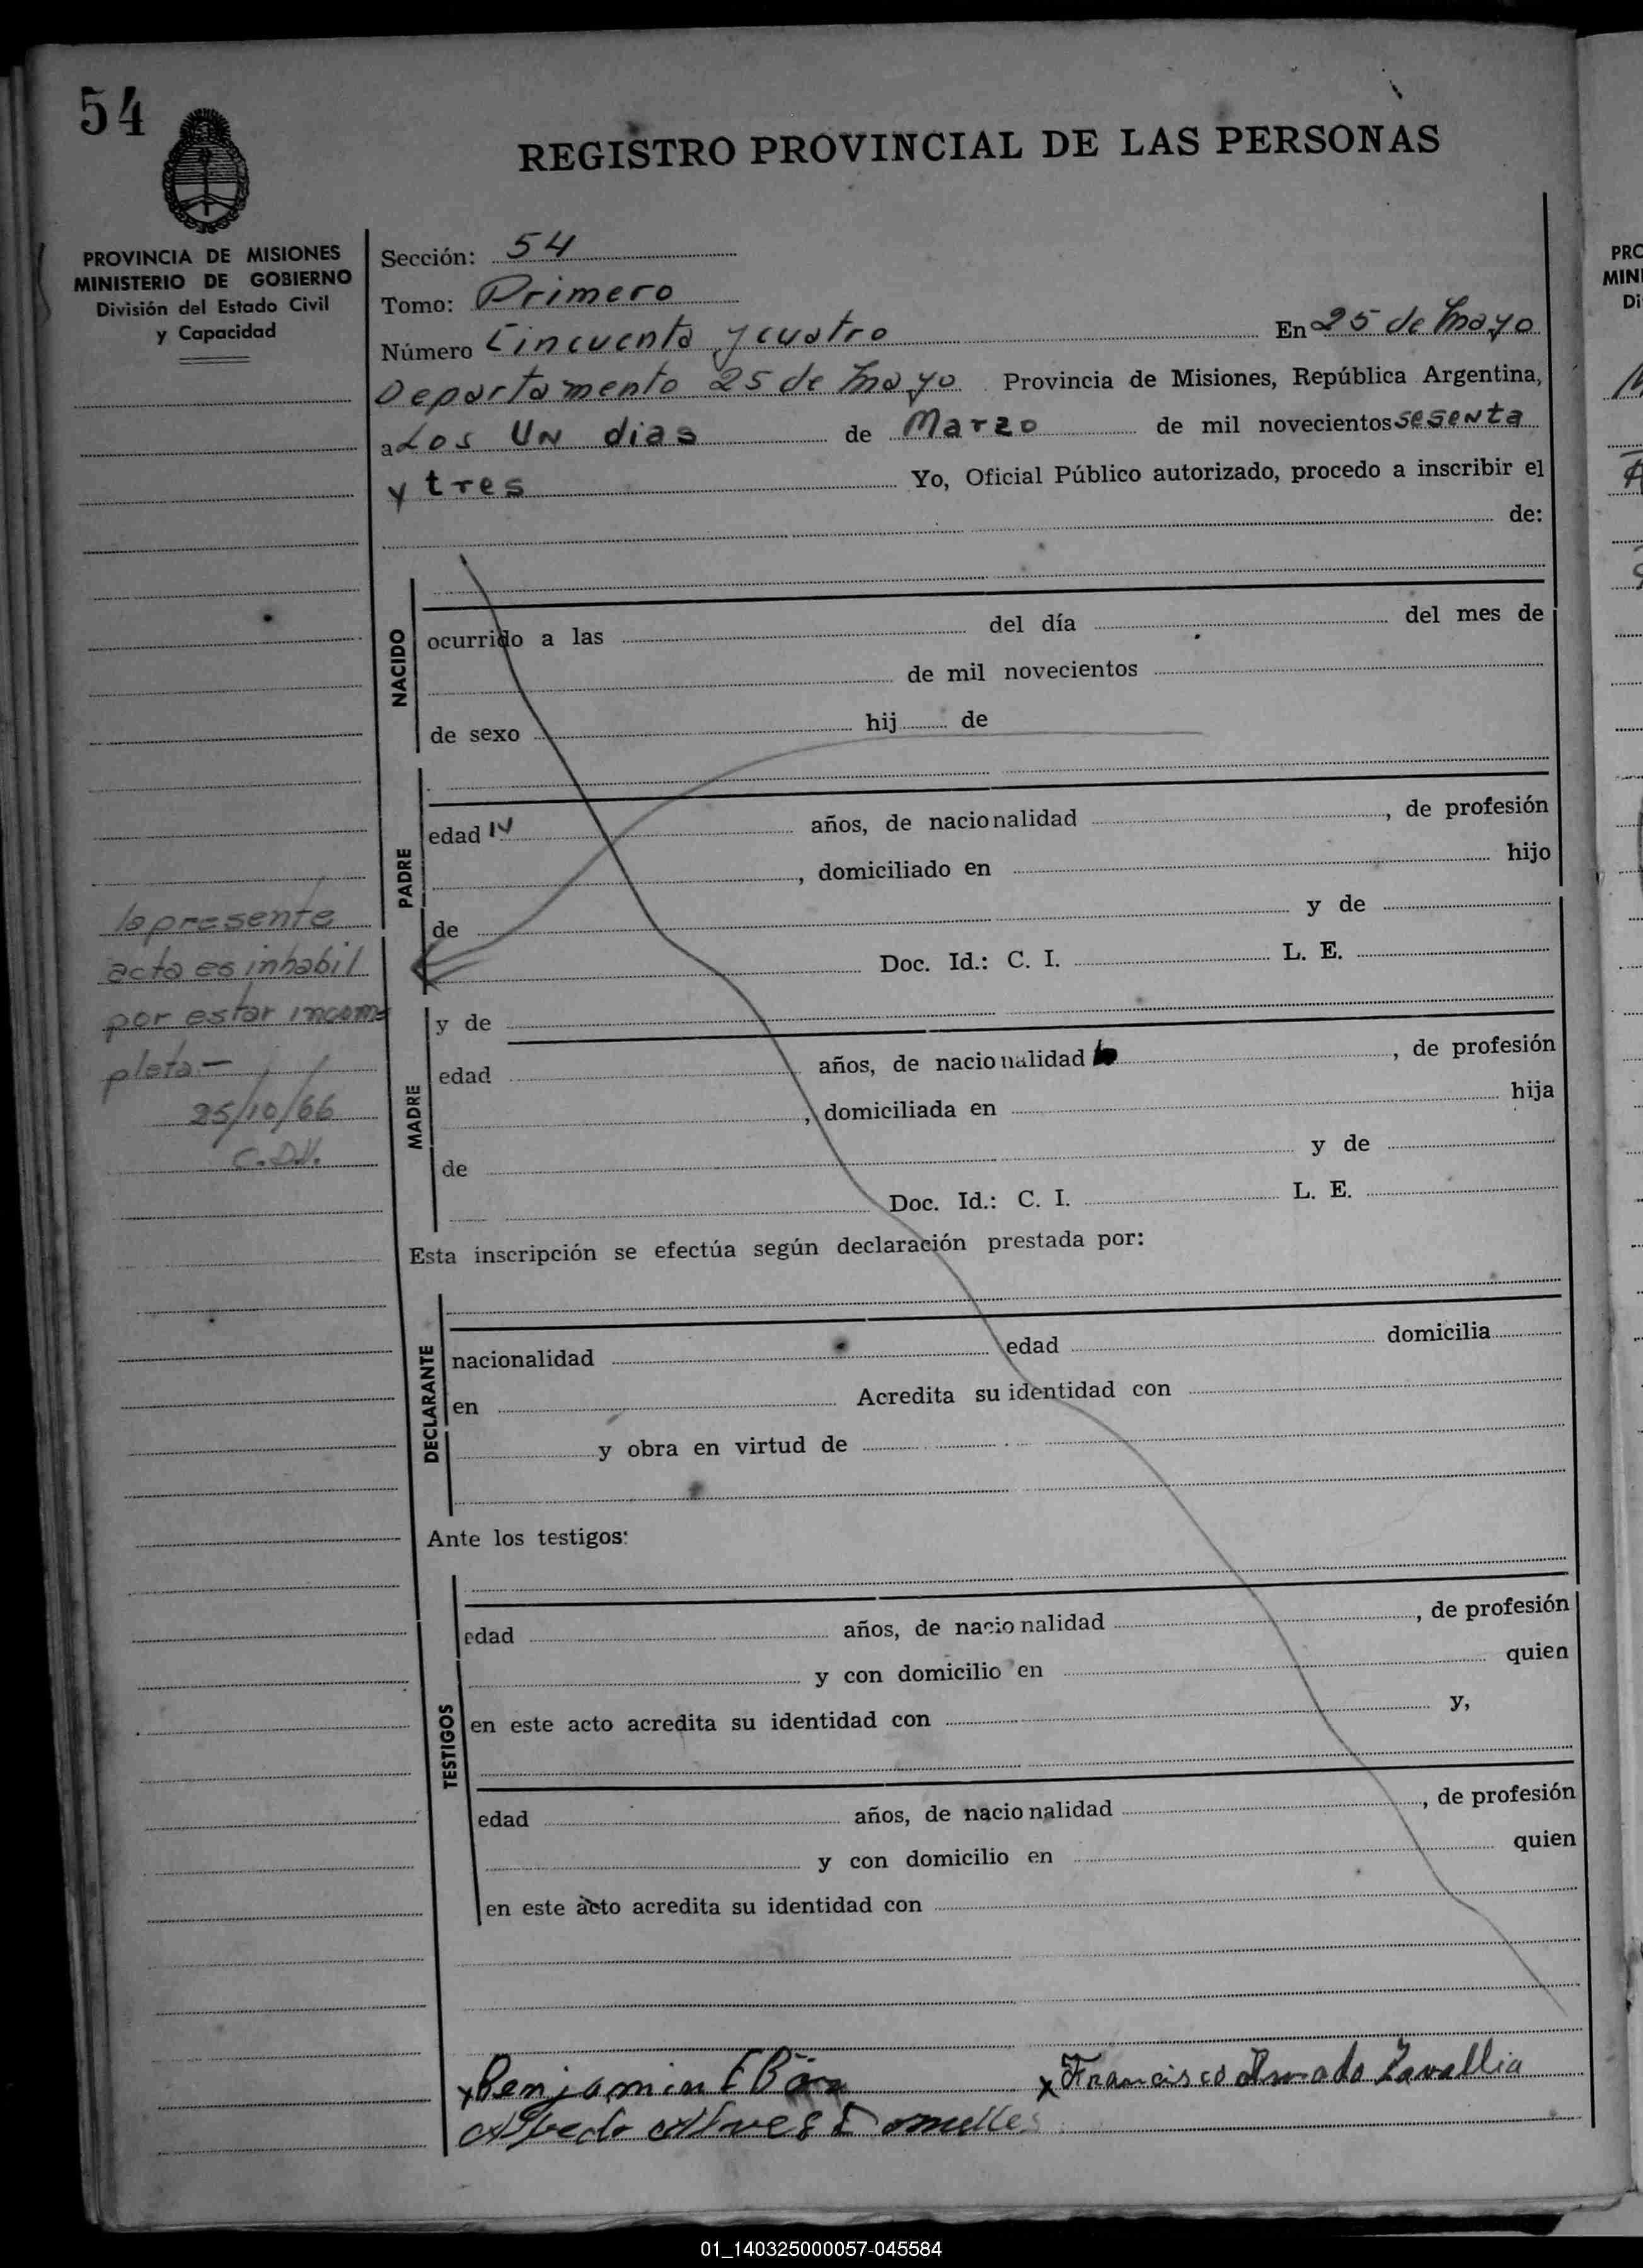 54
REGISTRO PROVINCIAL DE LAS PERSONAS
PROVINCIA DE MISIONES
MINISTERIO DE GOBIERNO
División del Estado Civil
y Capacidad
Sección: 54
Tomo: Primero
Número Cincuenta y cuatro En 25 de Mayo
Departamento 25 de Mayo Provincia de Misiones, República Argentina,
a Los UN dias de Marzo de mil novecientos sesenta
y tres Yo, Oficial Público autorizado, procedo a inscribir el
de:
NACIDO
ocurrido a las del día del mes de
de mil novecientos
de sexo hij de
PADRE
edad 14 años, de nacionalidad , de profesión
, domiciliado en hijo
de y de
Doc. Id.: C. I. L. E.
la presente
acta es inhabil
por estar incom-
pleta-
25/10/66
MADRE
y de
edad años, de nacionalidad , de profesión
, domiciliada en hija
de y de
Doc. Id.: C. I. L. E.
Esta inscripción se efectúa según declaración prestada por:
DECLARANTE
nacionalidad edad domicilia
en Acredita su identidad con
y obra en virtud de
Ante los testigos:
TESTIGOS
edad años, de nacionalidad , de profesión
y con domicilio en quien
en este acto acredita su identidad con y,
edad años, de nacionalidad , de profesión
y con domicilio en quien
en este acto acredita su identidad con
x Benjamin x Francisco
PRO
MINI
Di
01_140325000057-045584